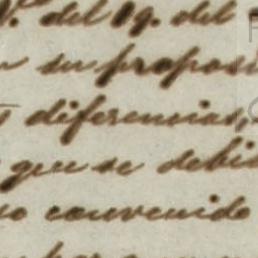 V. del 19. del
su proposi
diferencias,
que se debi
so convenido